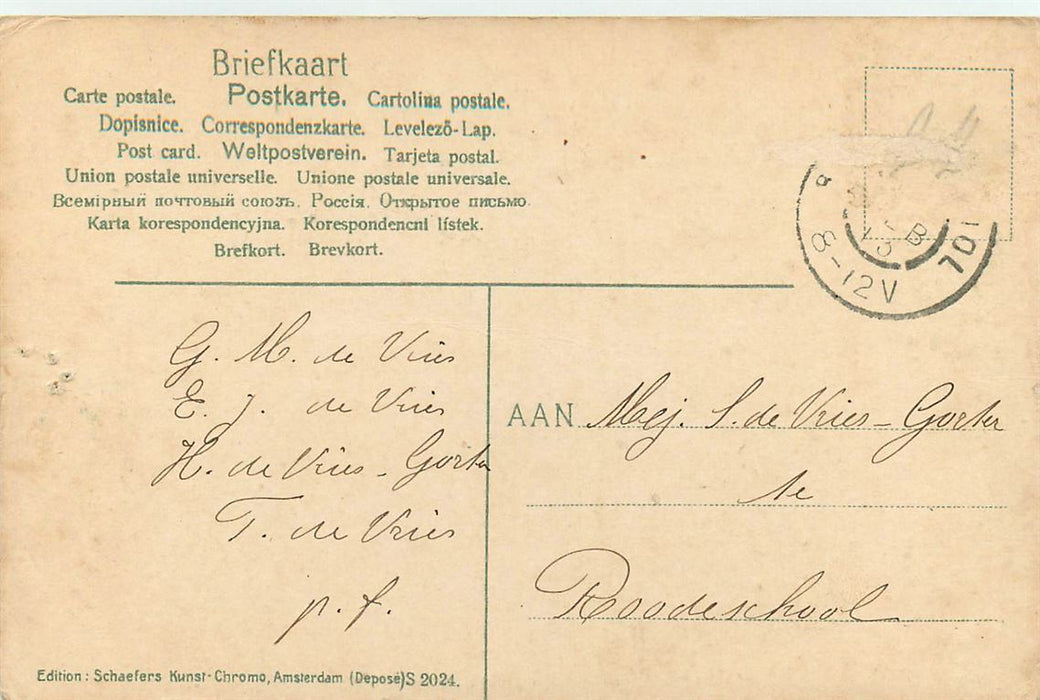 Briefkaart
Carte postale. Postkarte. Cartolina postale.
Dopisnice. Correspondenzkarte. Levelező-Lap.
Post card. Weltpostverein. Tarjeta postal.
Union postale universelle. Unione postale universale.
Всемірный почтовый союзъ. Россія. Открытое письмо.
Karta korespondencyjna. Korespondencní lístek.
Brefkort. Brevkort.
8-12V
G. M. de Vries
E. J. de Vries
H. de Vries - Gorter
T. de Vries
p. f.
AAN Mej. S. de Vries - Gorter
te
Roodeschool
Edition: Schaefers Kunst-Chromo, Amsterdam (Deposé) S 2024.